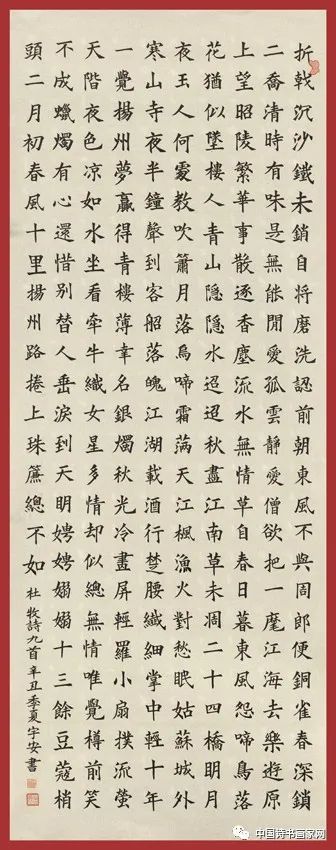 折戟沉沙鐵未銷自將磨洗認前朝東風不與周郎便銅雀春深鎖
二喬清時有味是無能閒愛孤雲靜愛僧欲把一麾江海去樂遊原
上望昭陵繁華事散逐香塵流水無情草自春日暮東風怨啼鳥落
花猶似墜樓人青山隱隱水迢迢秋盡江南草未凋二十四橋明月
夜玉人何處教吹簫月落烏啼霜滿天江楓漁火對愁眠姑蘇城外
寒山寺夜半鐘聲到客船落魄江湖載酒行楚腰纖細掌中輕十年
一覺揚州夢贏得青樓薄幸名銀燭秋光冷畫屏輕羅小扇撲流螢
天階夜色涼如水坐看牽牛織女星多情却似總無情唯覺樽前笑
不成蠟燭有心還惜別替人垂淚到天明娉娉嫋嫋十三餘豆蔻梢
頭二月初春風十里揚州路捲上珠簾總不如
杜牧詩九首辛丑季夏宇安書
中国诗书画家网